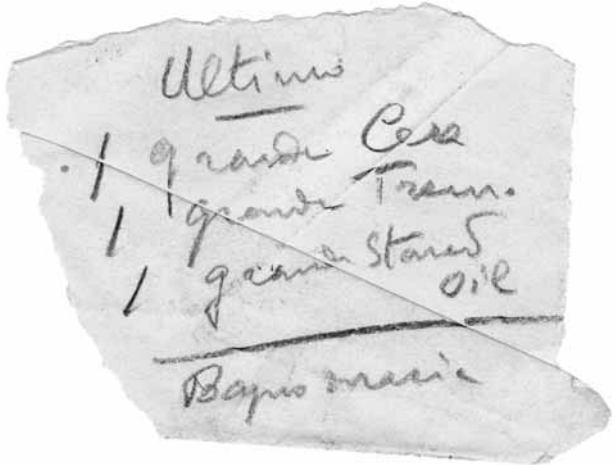 Ultimo
1 grande Cera
1 grande Trem.
1 grande Stand
oil
Bagno maria